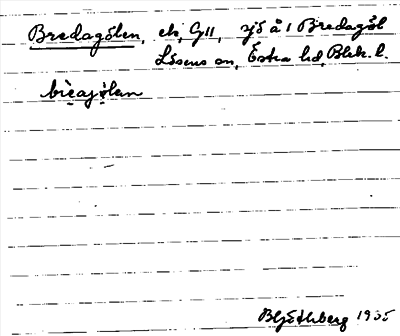 Bredagölen, ek, G11, sjö å 1 Bredagöl
Lösens sn, Östra hd, Blek. l.
breagölan
B Ljöthberg 1935